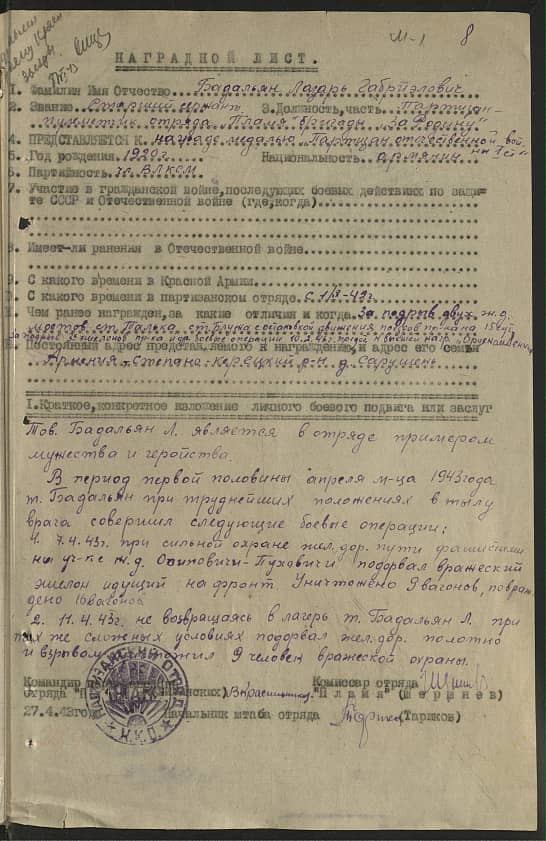 М-1 8
НАГРАДНОЙ ЛИСТ.
1. Фамилия Имя Отчество Бадальян Лазарь Габриэлович
2. Звание Старший сержант 3. Должность, часть Партизан-
пулеметчик отряда "Пламя" бригады "За Родину"
4. ПРЕДСТАВЛЯЕТСЯ К награде медалью "Партизан отечественной вой
ны I ст"
5. Год рождения 1920г Национальность армянин
6. Партийность чл ВЛКСМ
7. Участие в гражданской войне, последующих боевых действиях по защи-
те СССР и Отечественной войне (где, когда)
8. Имеет-ли ранения в Отечественной войне
9. С какого времени в Красной Армии
0. С какого времени в партизанском отряде с
Чем ранее награжден, за какие отличия и когда За подрыв двух ж.д.
мостов ст. Талька ст. с остановкой движения поездов пр-ка на 15 сут
За подрыв эшелонов пр-ка и др. боевые операции 10.2.43г. предст. к высшей награ.
Постоянный адрес представляемого к награждению, и адрес его семьи
Армения Степана-Керецкий р-н д. Сарушен
I. Краткое, конкретное изложение личного боевого подвига или заслуг
Тов. Бадальян Л. является в отряде примером
мужества и геройства.
В период первой половины апреля м-ца 1943 года
т. Бадальян при труднейших положениях в тылу
врага совершил следующие боевые операции:
1. 7.4.43г. при сильной охране жел. дор. пути фашистами
на уч-ке ж.д. Осиповичи-Пуховичи подорвал вражеский
эшелон идущий на фронт. Уничтожено 9 вагонов, повреж
дено вагонов
2. 11.4.43г. не возвращаясь в лагерь т. Бадальян Л. при
тех же сложных условиях подорвал жел. дор. полотно
и взрывом уничтожил 9 человек вражеской охраны.
Командир Комиссар отряда
отряда "П "Пламя" (Шершнев)
27.4.43го Начальник штаба отряда (Тариков)
ПАРТИЗАНСКИЙ ОТРЯД
Н.К.О.